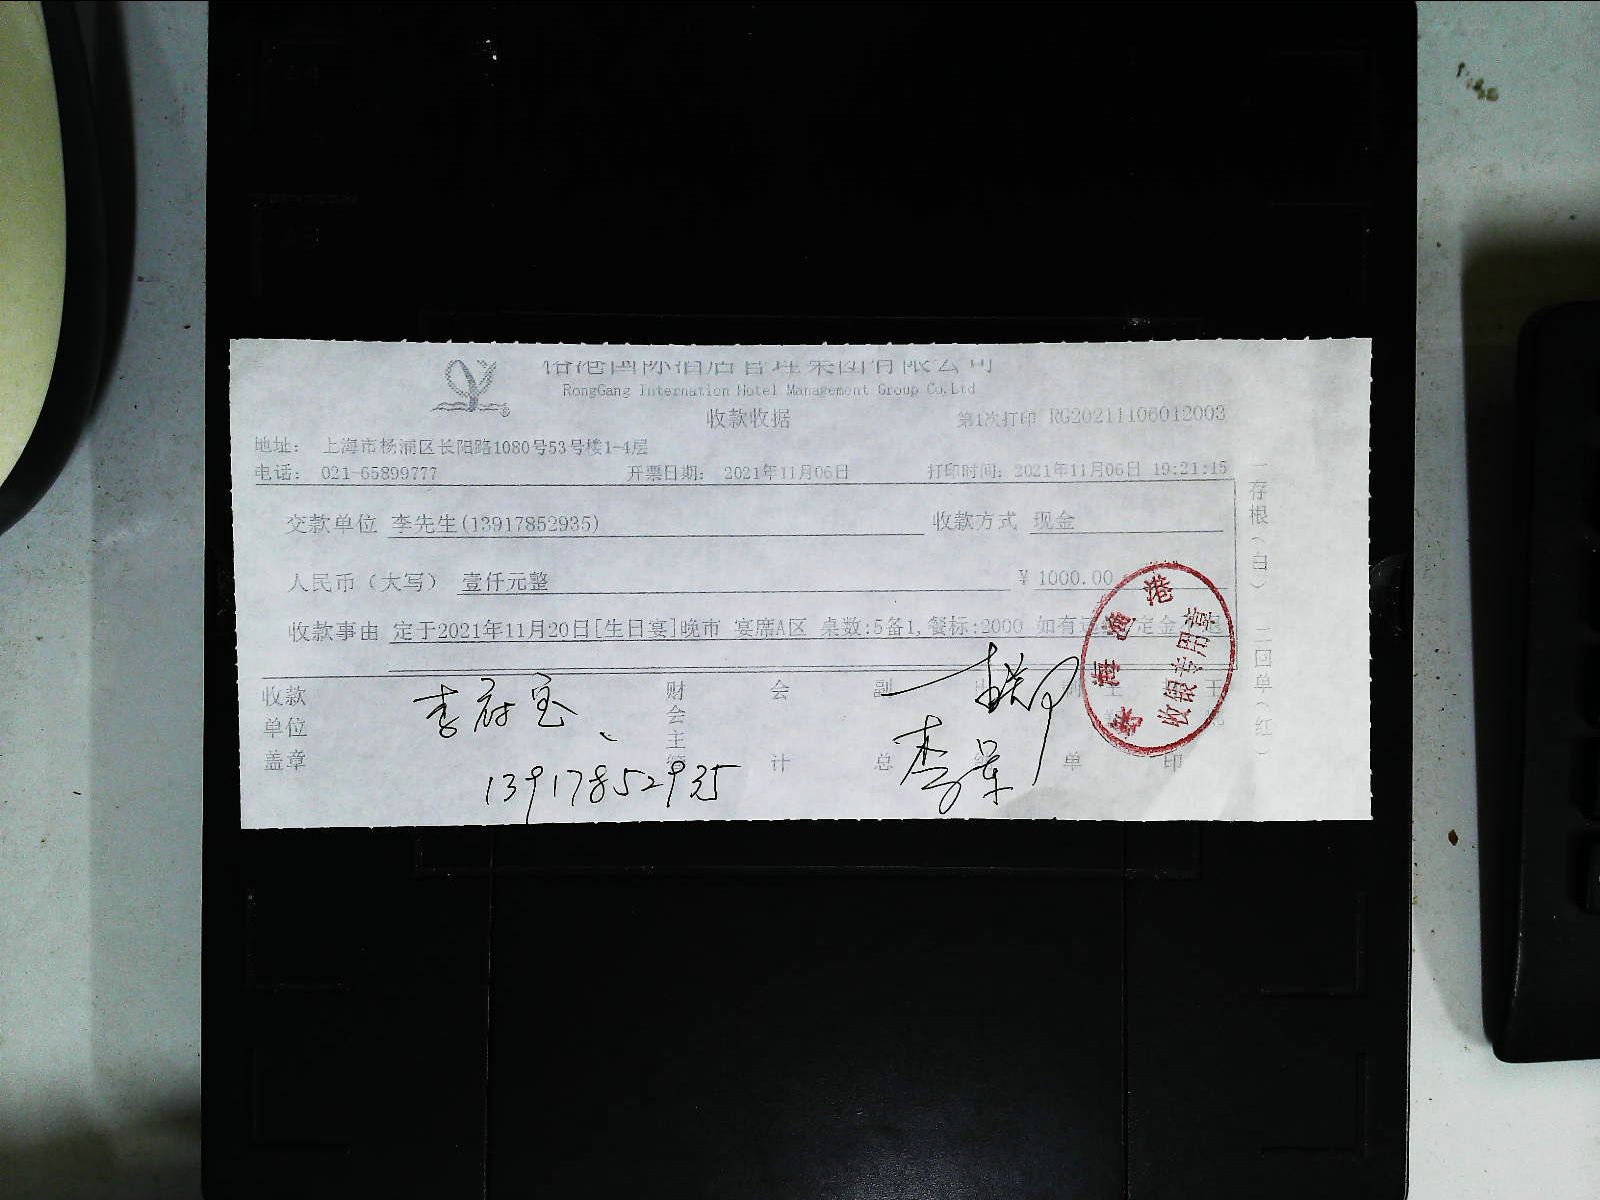 港国际酒店管理集团有限公司
RongGang Internation Hotel Management Group Co.Ltd
收款收据
第1次打印 RG20211106012003
地址： 上海市杨浦区长阳路1080号53号楼1-4层
电话： 021-65899777 开票日期： 2021年11月06日 打印时间：2021年11月06日 19:21:15
交款单位 李先生(13917852935) 收款方式 现金
人民币（大写） 壹仟元整 ¥ 1000.00
收款事由 定于2021年11月20日[生日宴]晚市 宴席A区 桌数:5备1,餐标:2000 如有 定金
收款 财 会 副
单位 会
盖章 主 计 总 单 印
李府宝
13917852935
一存根（白） 二回单（红）
荣海渔港
收银专用章